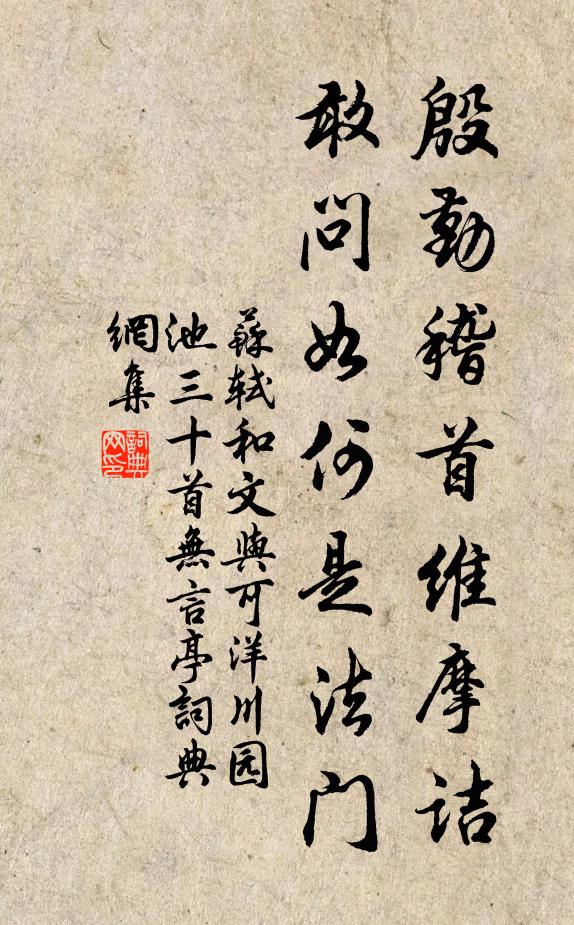 殷勤稽首維摩詰
敢問如何是法門
蘇軾和文與可洋川园
池三十首無言亭詞典
網集
詞典
网印